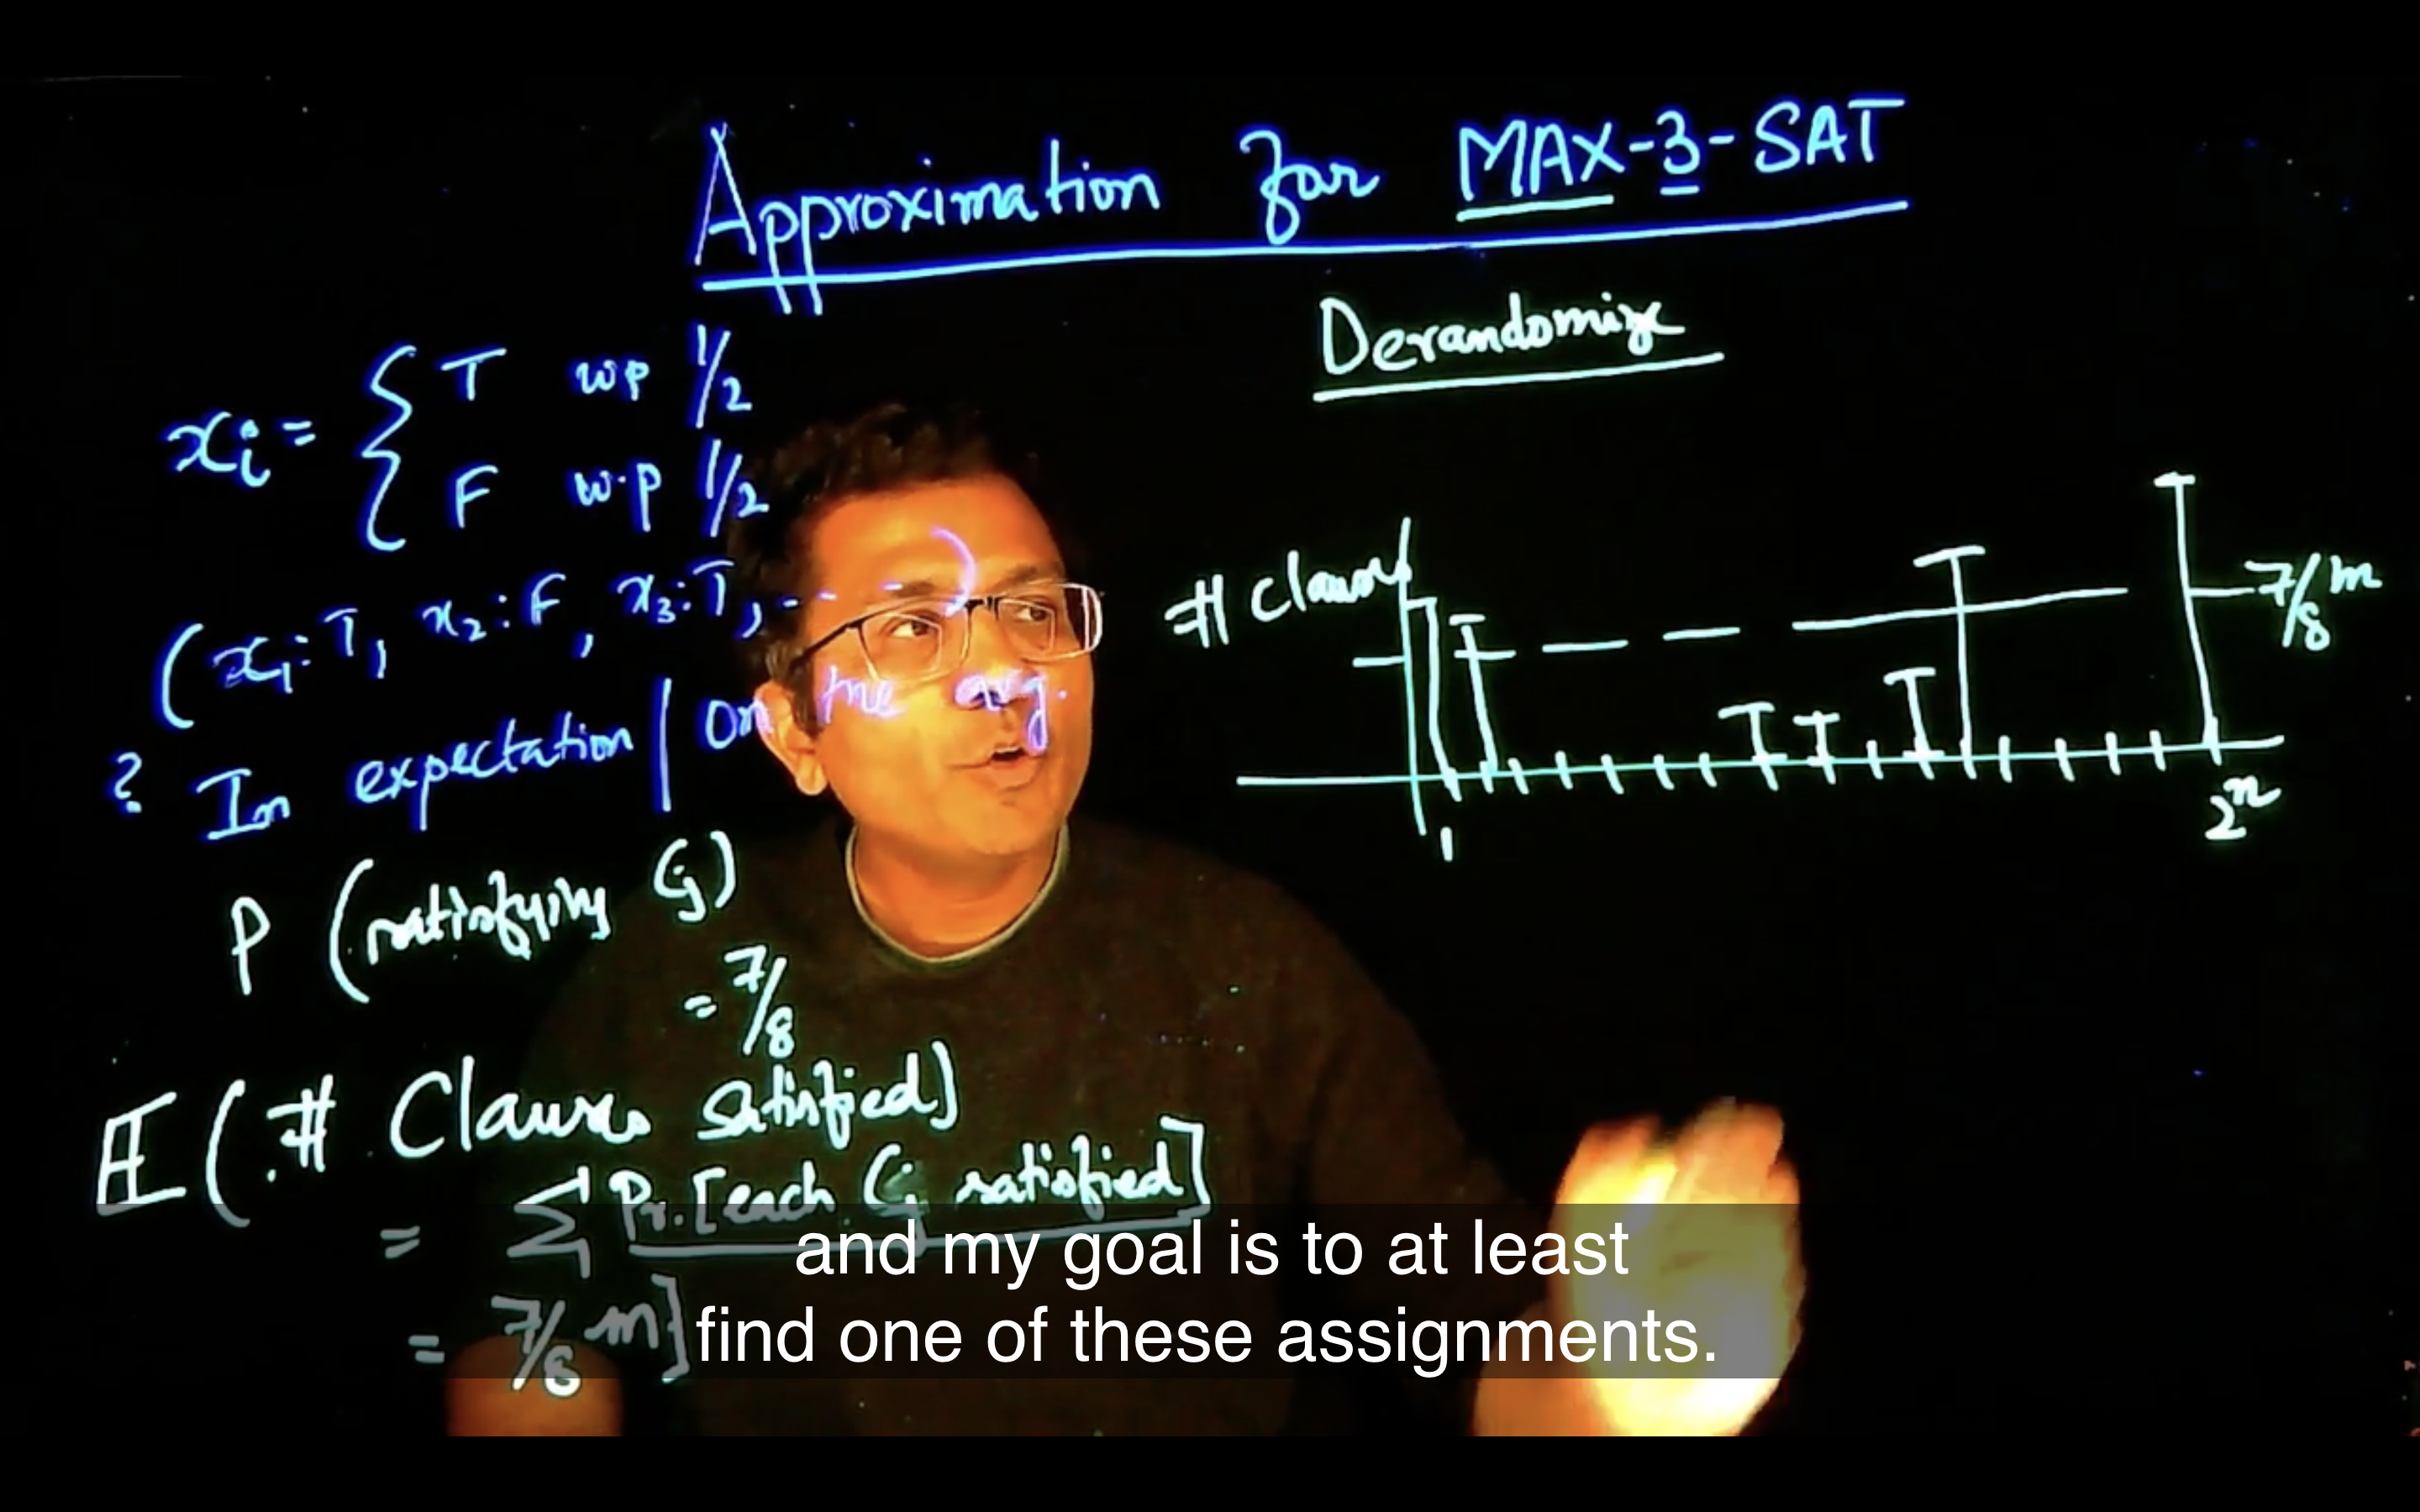 Approximation for MAX-3-SAT
Derandomize
xᵢ = { T wp 1/2
F w.p 1/2
(x₁:T, x₂:F, x₃:T, ...)
? In expectation / On the avg.
P (satisfying Cj)
= 7/8
E (# Clauses satisfied)
= Σ Pr.[each Cj satisfied]
= 7/8 m]
# Clauses
7/8 m
1
2ⁿ
and my goal is to at least
find one of these assignments.